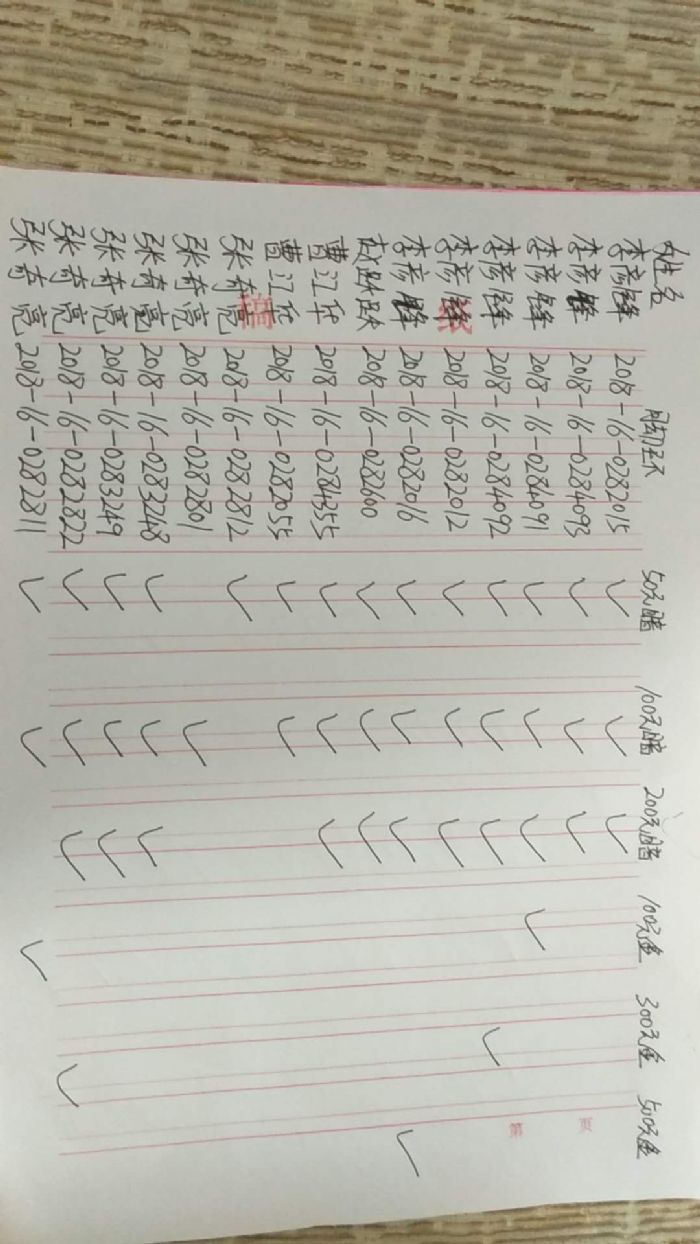 姓名 脚环 50元暗 100元暗 200元暗 100元鱼 300元鱼 500元鱼
李彦峰 2018-16-0282015 ✓ ✓ ✓
李彦峰 2018-16-0284093 ✓ ✓ ✓
李彦峰 2018-16-0284091 ✓ ✓ ✓ ✓
李彦峰 2018-16-0284092 ✓ ✓ ✓ ✓
李彦峰 2018-16-0282012 ✓ ✓ ✓
李彦峰 2018-16-0282016 ✓ ✓ ✓ ✓
赵跃跃 2018-16-0282600 ✓ ✓ ✓
曹江华 2018-16-0284355 ✓ ✓ ✓
曹江华 2018-16-0282055 ✓ ✓
张奇亮 2018-16-0282812 ✓
张奇亮 2018-16-0282801 ✓
张奇亮 2018-16-0283248 ✓ ✓ ✓
张奇亮 2018-16-0283249 ✓ ✓ ✓
张奇亮 2018-16-0282822 ✓ ✓ ✓ ✓
张奇亮 2018-16-0282811 ✓ ✓ ✓
稿 纸
第 页